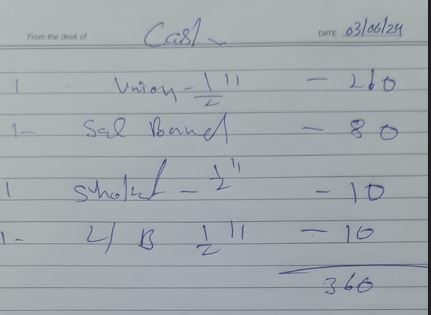 From the desk of Cash DATE 03/06/24
1 Union - 1/2" - 260
1- Sal Band - 80
1 - 1/2" - 10
1- L/B 1/2" - 10
360